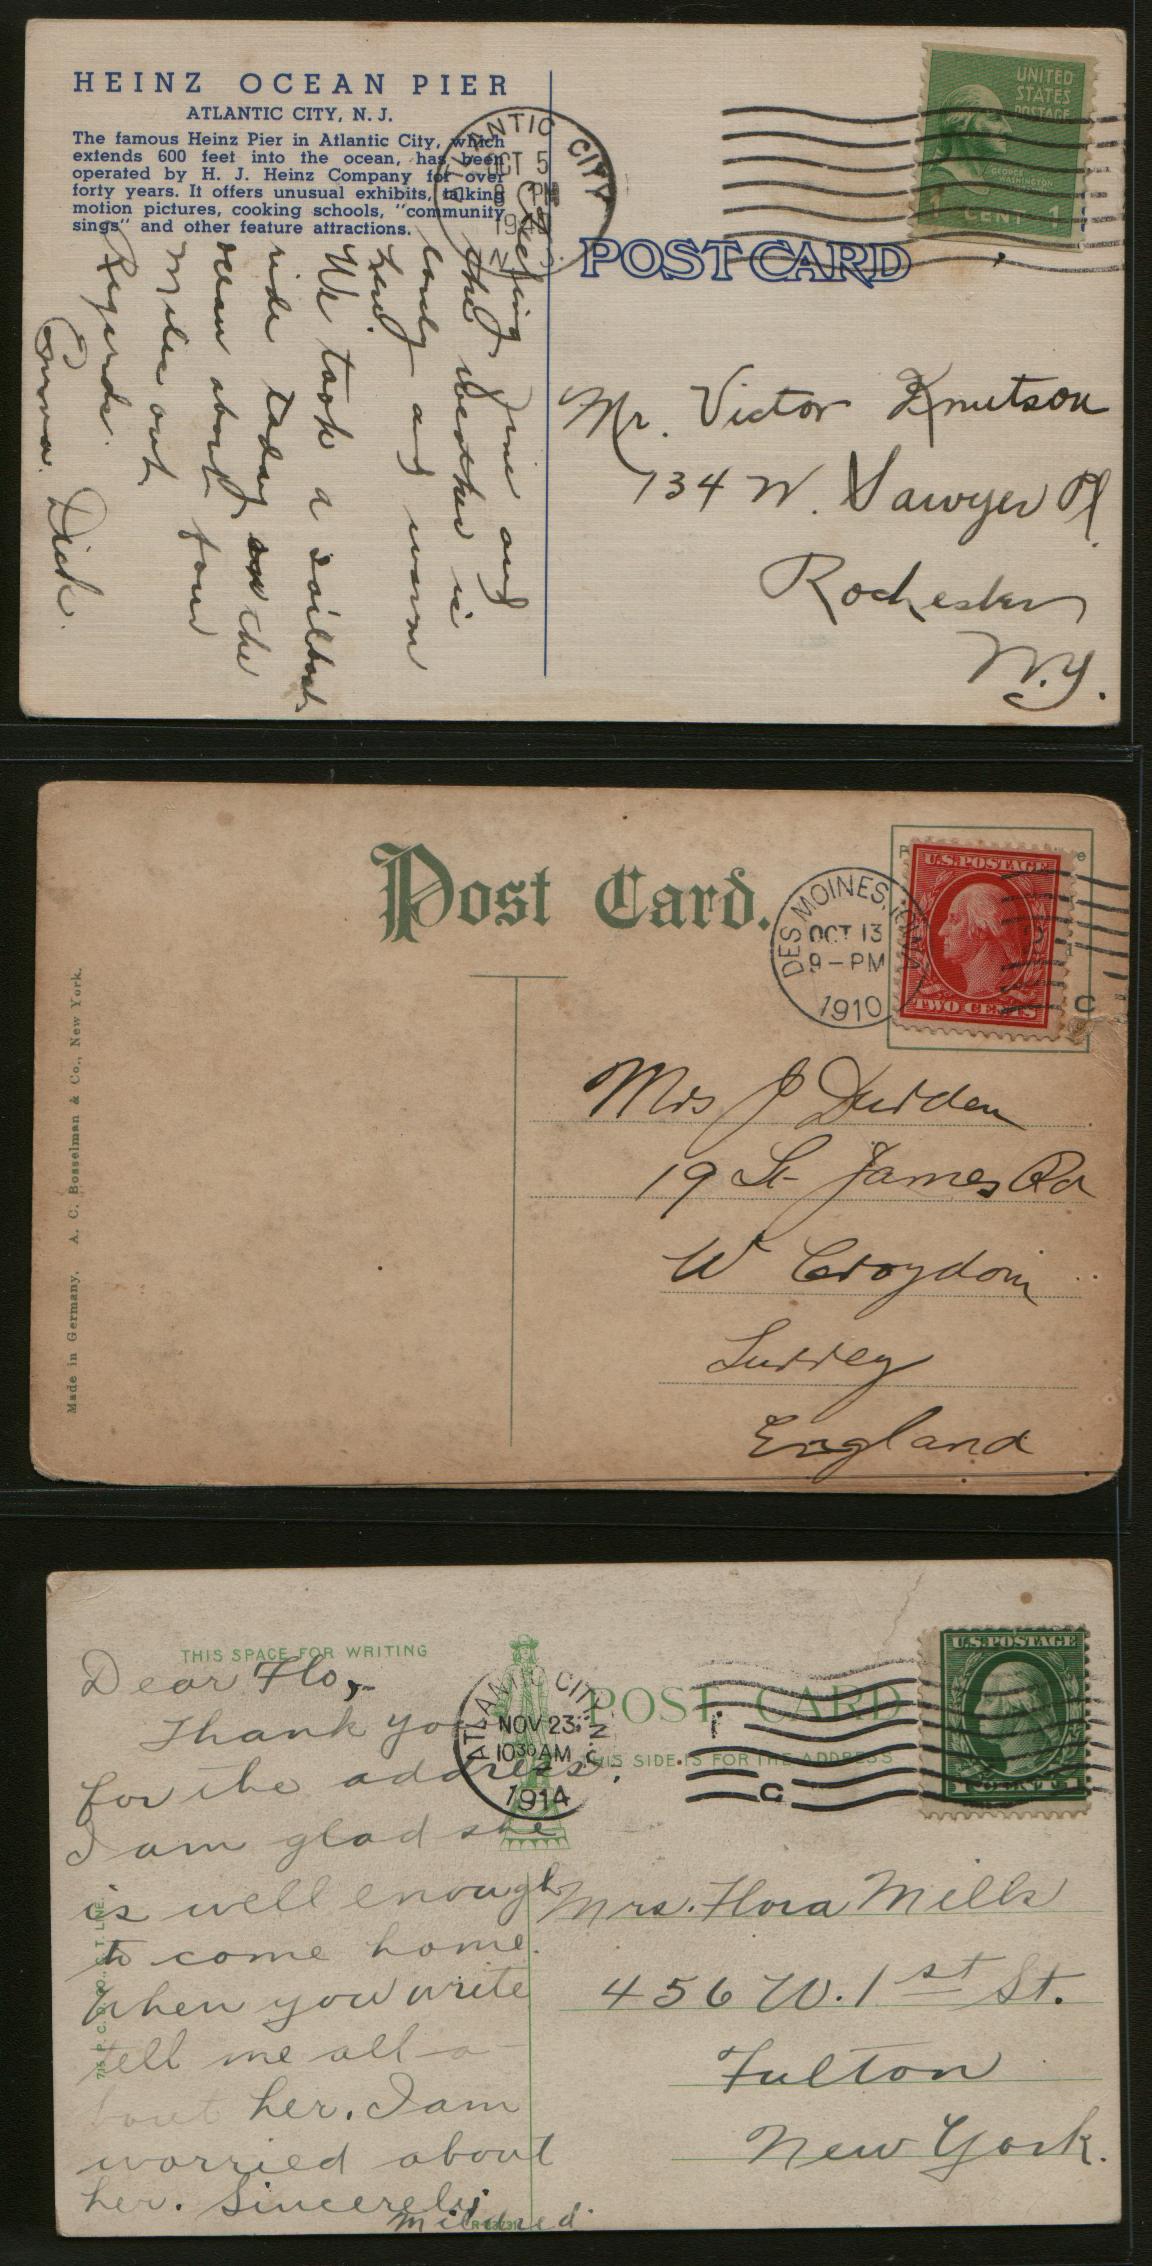 HEINZ OCEAN PIER
ATLANTIC CITY, N. J.
The famous Heinz Pier in Atlantic City, which
extends 600 feet into the ocean, has been
operated by H. J. Heinz Company for over
forty years. It offers unusual exhibits, talking
motion pictures, cooking schools, "community
sings" and other feature attractions.
ATLANTIC CITY
OCT 5
PM
N. J.
UNITED
STATES
POSTAGE
GEORGE
WASHINGTON
1 CENT 1
POST CARD
Feeling fine and
the weather is
lovely and warm
here.
We took a sailboat
ride today on the
ocean about four
miles out
Regards.
Emma. Dick.
Mr. Victor Knutson
134 W. Sawyer Pl.
Rochester
N.Y.
Post Card.
DES MOINES, IOWA
OCT 13
9-PM
1910
U.S. POSTAGE
2
TWO CENTS
C
Made in Germany. A. C. Bosselman & Co., New York.
Mrs J Durden
19 St James Rd
W Croydon
Surrey
England
THIS SPACE FOR WRITING
POST CARD
THIS SIDE IS FOR THE ADDRESS
ATLANTIC CITY, N.J.
NOV 23
10 30 AM
1914
C
U.S. POSTAGE
Dear Flo,
Thank you
for the address.
I am glad she
is well enough
to come home.
When you write
tell me all a-
bout her. I am
worried about
her. Sincerely
Mildred
Mrs. Flora Mills
456 W. 1st St.
Fulton
New York.